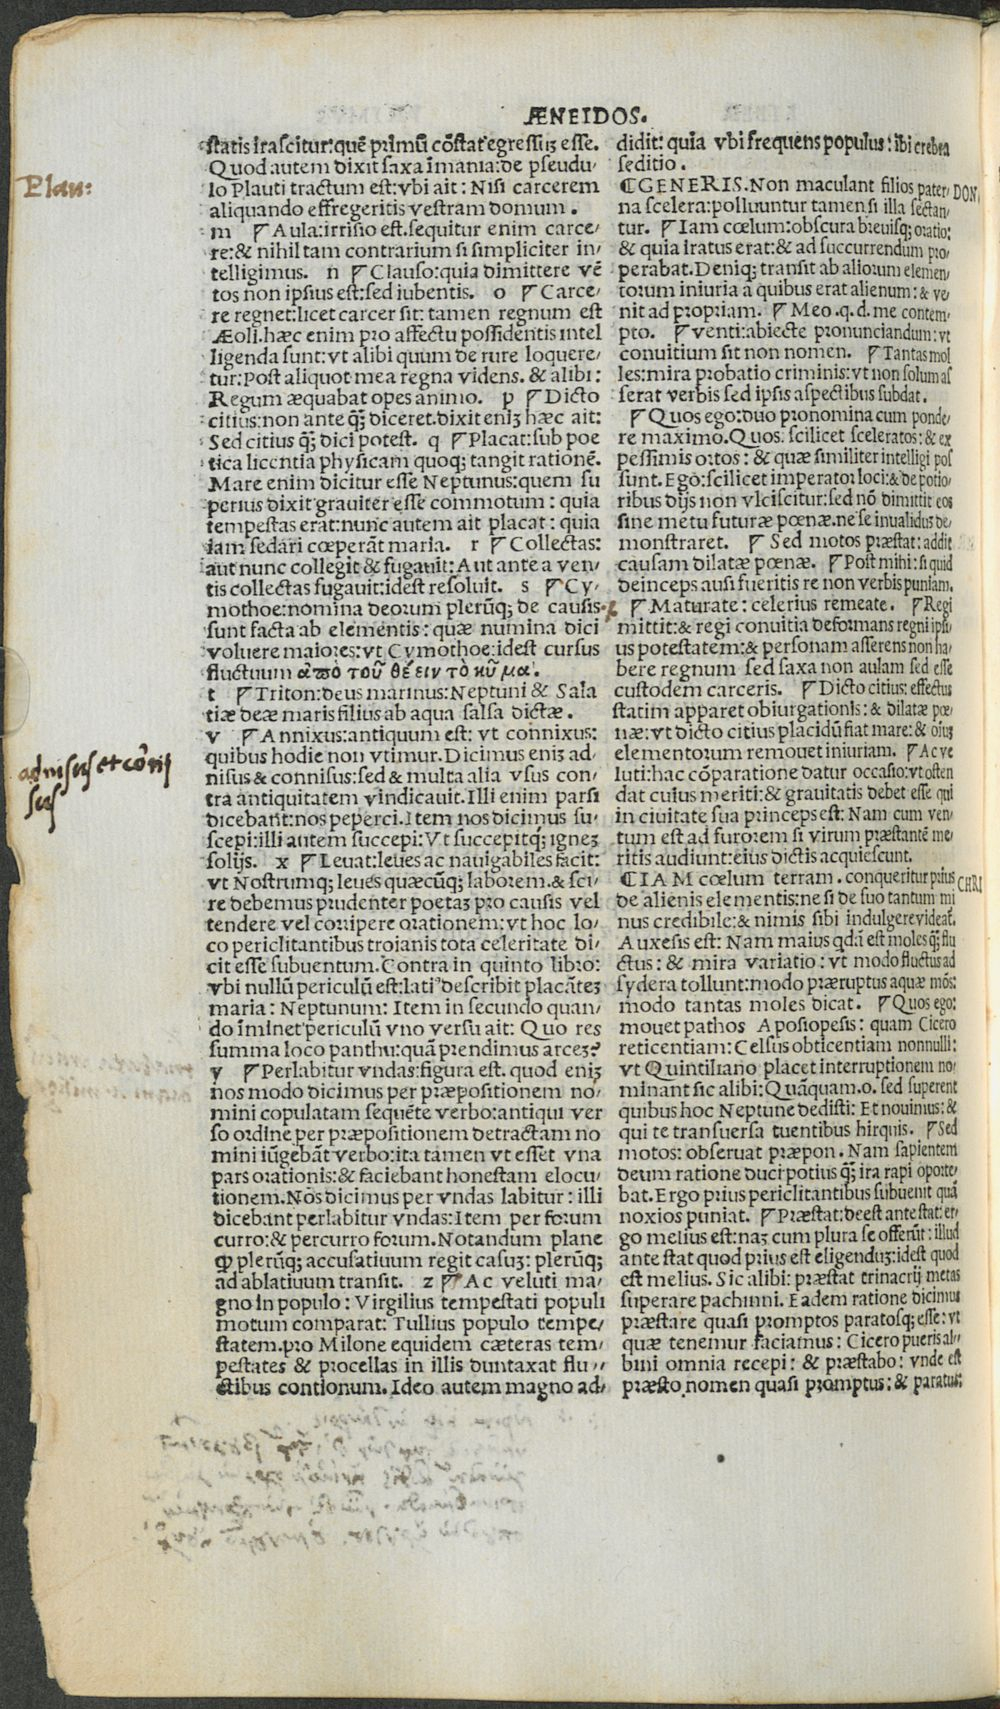 ÆNEIDOS.
ſtatis iraſcitur: quē primū cōſtat egreſſuꝫ eſſe.
Quod autem dixit ſaxa īmania: de pſeudu-
Plau:
lo Plauti tractum eſt: vbi ait: Niſi carcerem
aliquando effregeritis veſtram domum.
m ¶ Aula: irriſio eſt. ſequitur enim carce-
re: & nihil tam contrarium ſi ſimpliciter in-
telligimus. n ¶ Clauſo: quia dimittere vē
tos non ipſius eſt: ſed iubentis. o ¶ Carce-
re regnet: licet carcer ſit: tamen regnum eſt
Æoli. hæc enim pro affectu poſſidentis intel
ligenda ſunt: vt alibi quum de rure loquere-
tur: Poſt aliquot mea regna videns. & alibi:
Regum æquabat opes animo. p ¶ Dicto
citius: non ante qꝫ diceret. dixit eniꝫ hæc ait:
Sed citius qꝫ dici poteſt. q ¶ Placat: ſub poe
tica licentia phyſicam quoqꝫ tangit rationē.
Mare enim dicitur eſſe Neptunus: quem ſu
perius dixit grauiter eſſe commotum: quia
tempeſtas erat: nunc autem ait placat: quia
iam ſedari cœperāt maria. r ¶ Collectas:
aut nunc collegit & fugauit: Aut ante a ven-
tis collectas fugauit: ideſt reſoluit. s ¶ Cy-
mothoe: nomina deorum plerūqꝫ de cauſis
ſunt facta ab elementis: quæ numina dici
voluere maiores: vt Cymothoe: ideſt curſus
fluctuum ἀπὸ τοῦ θέειν τὸ κῦμα.
t ¶ Triton: deus marinus: Neptuni & Sala
tiæ deæ maris filius ab aqua ſalſa dictæ.
v ¶ Annixus: antiquum eſt: vt connixus:
quibus hodie non vtimur. Dicimus eniꝫ ad-
adniſus et cōni
ſus
niſus & conniſus: ſed & multa alia vſus con-
tra antiquitatem vindicauit. Illi enim parſi
dicebant: nos peperci. Item nos dicimus ſu-
ſcepi: illi autem ſuccepi: Vt ſuccepitqꝫ ignez
folijs. x ¶ Leuat: leues ac nauigabiles facit:
vt Noſtrumqꝫ leues quæcūqꝫ laborem. & ſci-
re debemus prudenter poetaꝫ pro cauſis vel
tendere vel corripere orationem: vt hoc lo-
co periclitantibus troianis tota celeritate di-
cit eſſe ſubuentum. Contra in quinto libro:
vbi nullū periculū eſt: lati' deſcribit placātez
maria: Neptunum: Item in ſecundo quan-
do īminet periculū vno verſu ait: Quo res
ſumma loco panthu: quā prendimus arcez?
y ¶ Perlabitur vndas: figura eſt. quod eniꝫ
nos modo dicimus per præpoſitionem no-
mini copulatam ſequēte verbo: antiqui ver
ſo ordine per præpoſitionem detractam no
mini iūgebāt verbo: ita tamen vt eſſet vna
pars orationis: & faciebant honeſtam elocu-
tionem. Nos dicimus per vndas labitur: illi
dicebant perlabitur vndas: Item per forum
curro: & percurro forum. Notandum plane
ꝙ plerūqꝫ accuſatiuum regit caſuꝫ: plerūqꝫ
ad ablatiuum tranſit. z ¶ Ac veluti ma-
gno in populo: Virgilius tempeſtati populi
motum comparat: Tullius populo tempe-
ſtatem. pro Milone equidem cæteras tem-
peſtates & procellas in illis duntaxat flu-
ctibus contionum. Ideo autem magno ad-
didit: quia vbi frequens populus: ibi crebra
ſeditio.
DON.
¶ GENERIS. Non maculant filios pater-
na ſcelera: polluuntur tamen ſi illa ſectan-
tur. ¶ Iam cœlum: obſcura breuiſqꝫ oratio:
& quia iratus erat: & ad ſuccurrendum pro-
perabat. Deniqꝫ tranſit ab aliorum elemen-
torum iniuria a quibus erat alienum: & ve-
nit ad propriam. ¶ Meo. q. d. me contem-
pto. ¶ venti: abiecte pronunciandum: vt
conuitium ſit non nomen. ¶ Tantas mol
les: mira probatio criminis: vt non ſolum aſ
ſerat verbis ſed ipſis aſpectibus ſubdat.
¶ Quos ego: duo pronomina cum ponde-
re maximo. Quos: ſcilicet ſceleratos: & ex
peſſimis ortos: & quæ ſimiliter intelligi poſ
ſunt. Ego: ſcilicet imperator loci: & de potio-
ribus dijs non vlciſcitur: ſed nō dimittit eos
ſine metu futuræ pœnæ. ne ſe inualidus de-
monſtraret. ¶ Sed motos præſtat: addit
cauſam dilatæ pœnæ. ¶ Poſt mihi: ſi quid
deinceps auſi fueritis re non verbis puniam.
¶ Maturate: celerius remeate. ¶ Regi
mittit: & regi conuitia deformans regni ipſi-
us poteſtatem: & perſonam aſſerens non ha-
bere regnum ſed ſaxa non aulam ſed eſſe
cuſtodem carceris. ¶ Dicto citius: effectus
ſtatim apparet obiurgationis: & dilatæ pœ-
næ: vt dicto citius placidū fiat mare: & oīuꝫ
elementorum remouet iniuriam. ¶ Ac ve
luti: hac cōparatione datur occaſio: vt oſten
dat cuius meriti: & grauitatis debet eſſe qui
in ciuitate ſua princeps eſt: Nam cum ven-
tum eſt ad furorem ſi virum præſtantē me-
ritis audiunt: eius dictis acquieſcunt.
CHRI
¶ IAM cœlum terram. conqueritur prius
de alienis elementis: ne ſi de ſuo tantum mi
nus credibile: & nimis ſibi indulgere videať.
Auxeſis eſt: Nam maius qdā eſt moles qꝫ flu
ctus: & mira variatio: vt modo fluctus ad
ſydera tollunt: modo præruptus aquæ mōs:
modo tantas moles dicat. ¶ Quos ego:
mouet pathos Apoſiopeſis: quam Cicero
reticentiam: Celſus obticentiam nonnulli:
vt Quintiliano placet interruptionem no-
minant ſic alibi: Quāquam. o. ſed ſuperent
quibus hoc Neptune dediſti: Et nouimus: &
qui te tranſuerſa tuentibus hirquis. ¶ Sed
motos: obſeruat præpon. Nam ſapientem
deum ratione duci potius qꝫ ira rapi oporte-
bat. Ergo prius periclitantibus ſubuenit quā
noxios puniat. ¶ Præſtat: deeſt ante ſtat: er-
go melius eſt: naꝫ cum plura ſe offerūt: illud
ante ſtat quod prius eſt eligenduꝫ: ideſt quod
eſt melius. Sic alibi: præſtat trinacrij metas
ſuperare pachinni. Eadem ratione dicimus
præſtare quaſi promptos paratoſqꝫ eſſe: vt
quæ tenemur faciamus: Cicero pueris al-
bini omnia recepi: & præſtabo: vnde eſt
præſto nomen quaſi promptus: & paratus: